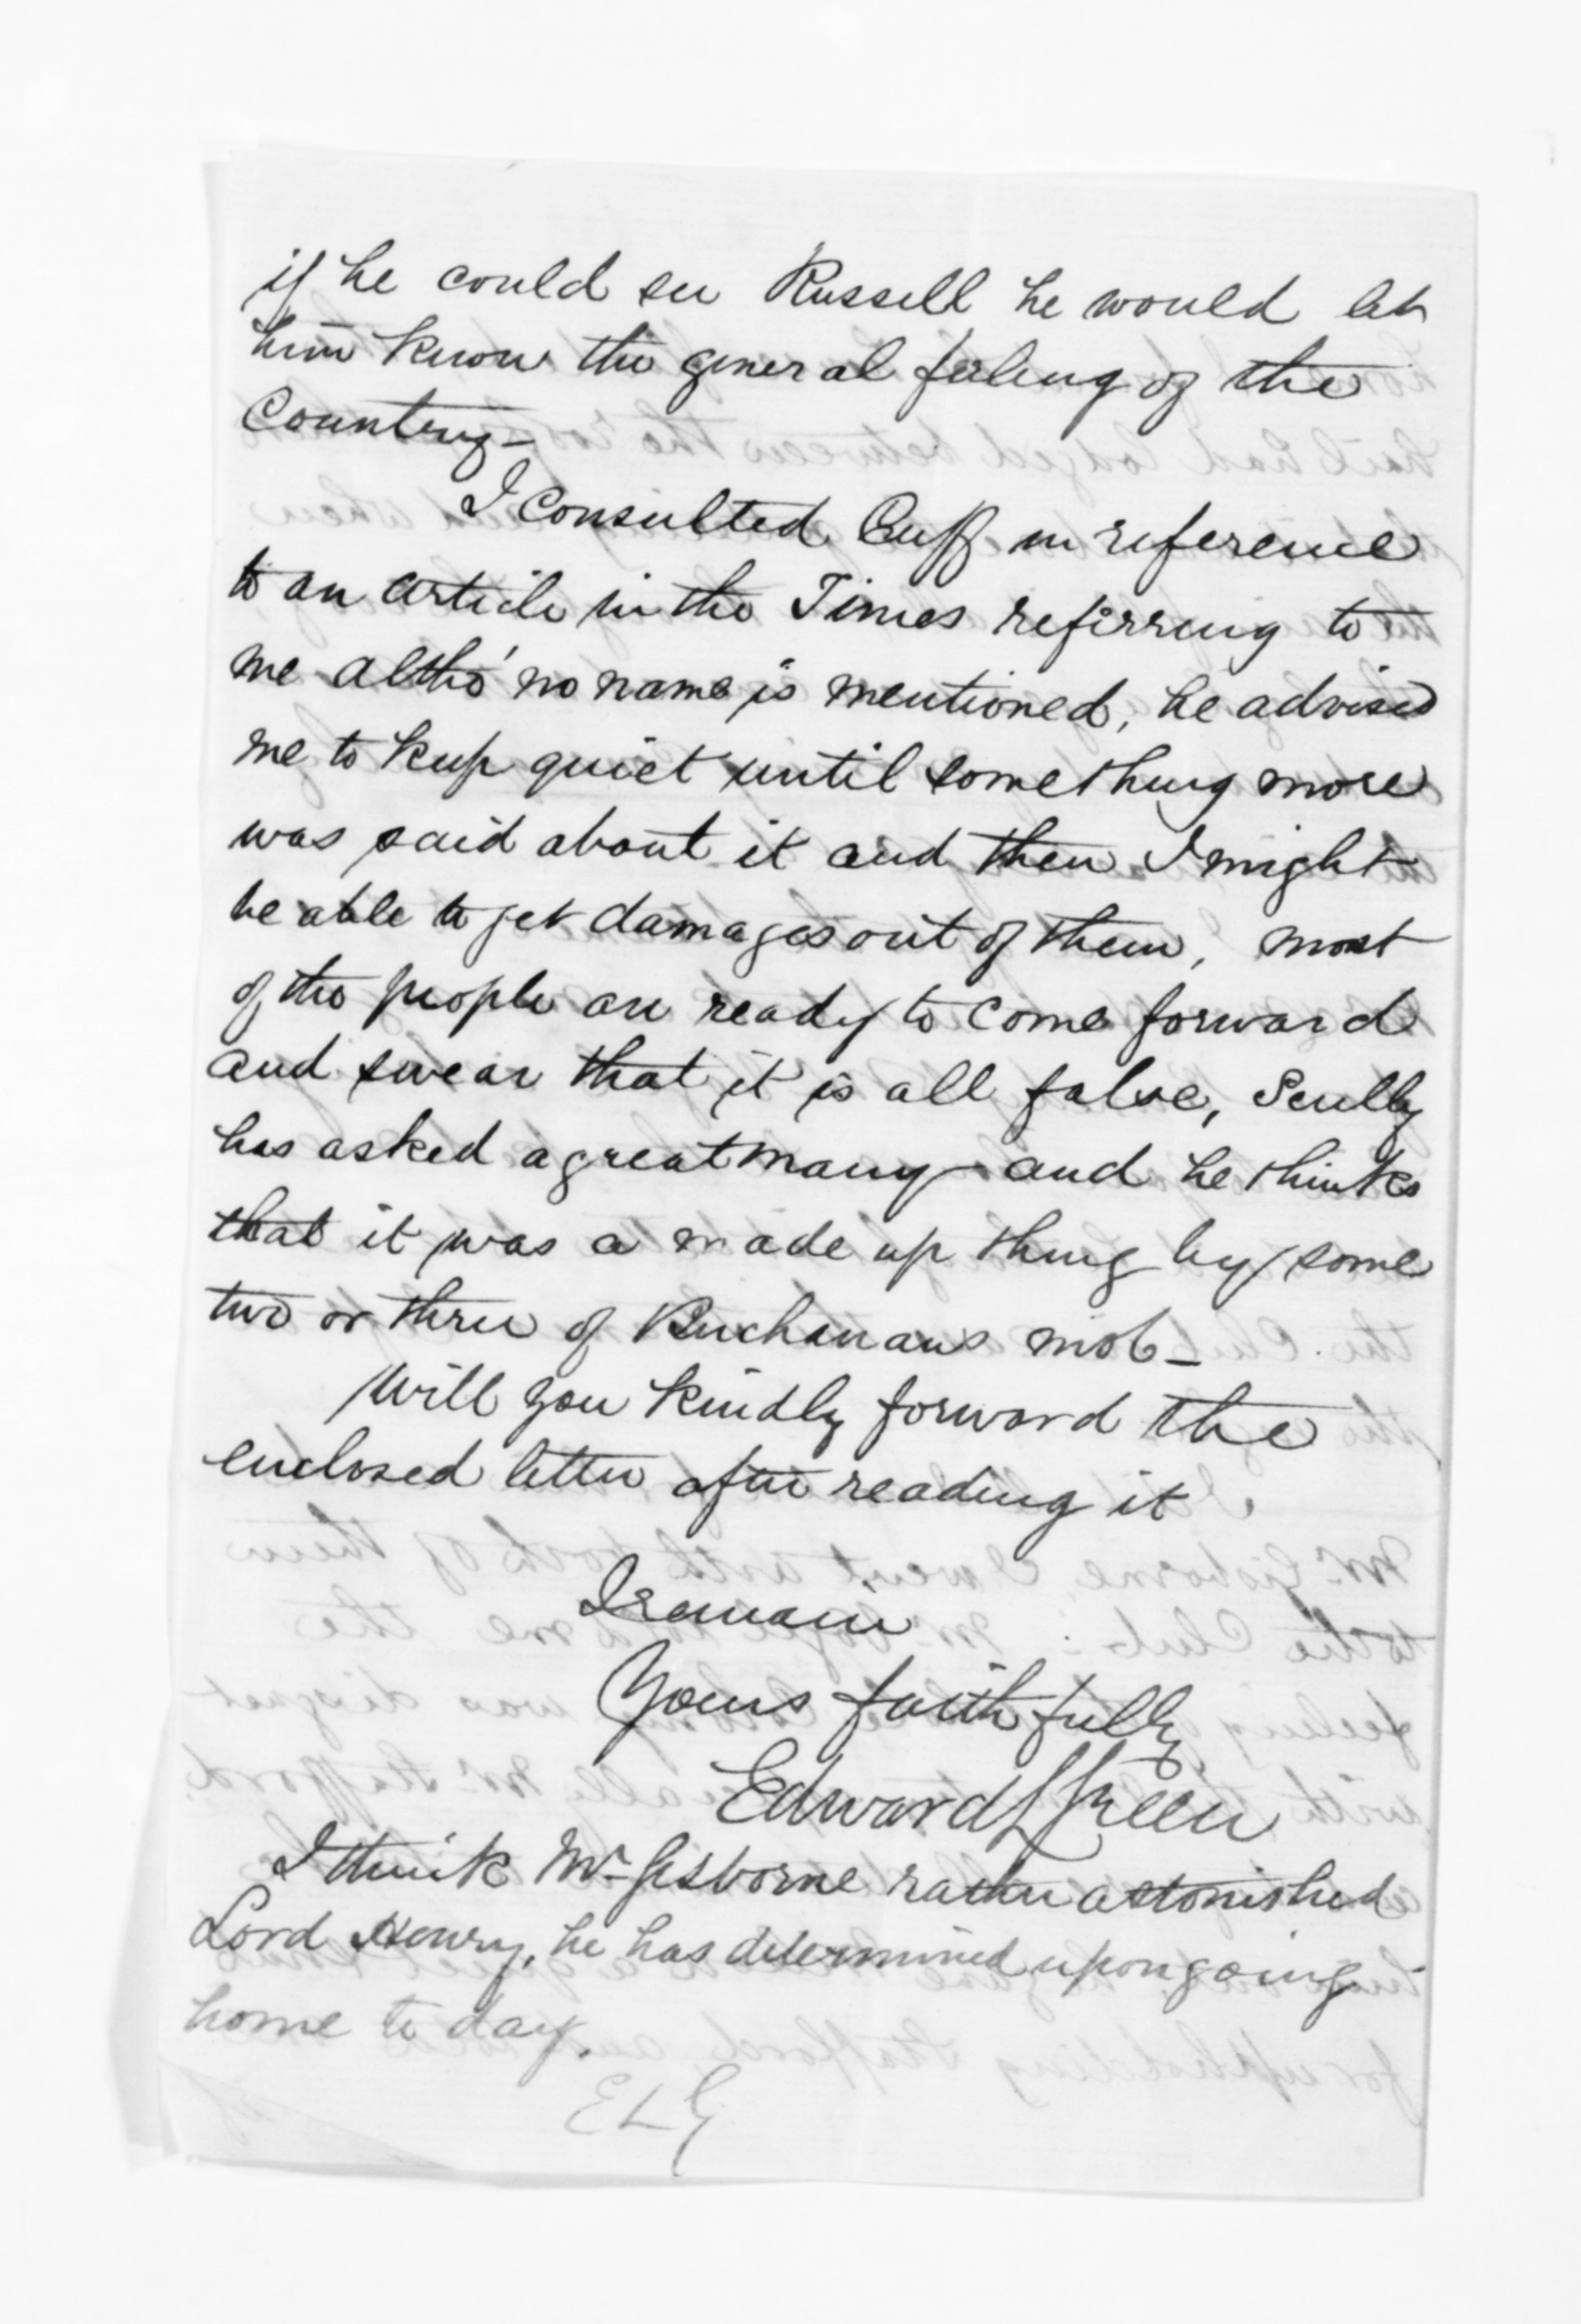 if he could see Russell he would let
him know the general feeling of the
Country –
I consulted Cuff in reference
to an article in the Times referring to
me altho' no name is mentioned, he advised
me to keep quiet until something more
was said about it and then I might
be able to get damages out of them, most
of the people are ready to come forward
and swear that it is all false, Scully
has asked a great many and he thinks
that it was a made up thing by some
two or three of Buchanans mob –
Will you kindly forward the
enclosed letter after reading it.
I remain
Yours faithfully
Edward L Green
I think Mr Gisborne rather astonished
Lord Henry, he has determined upon going
home to day.
ELG